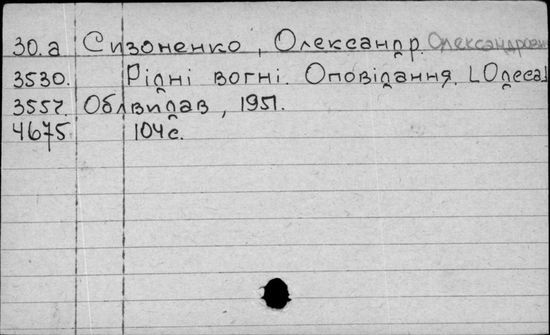 30.а Сизоненко, Олександр Олександрович
3530. Рідні вогні. Оповідання. [Одеса]
3557. Облвидав, 1951.
4675 104 с.